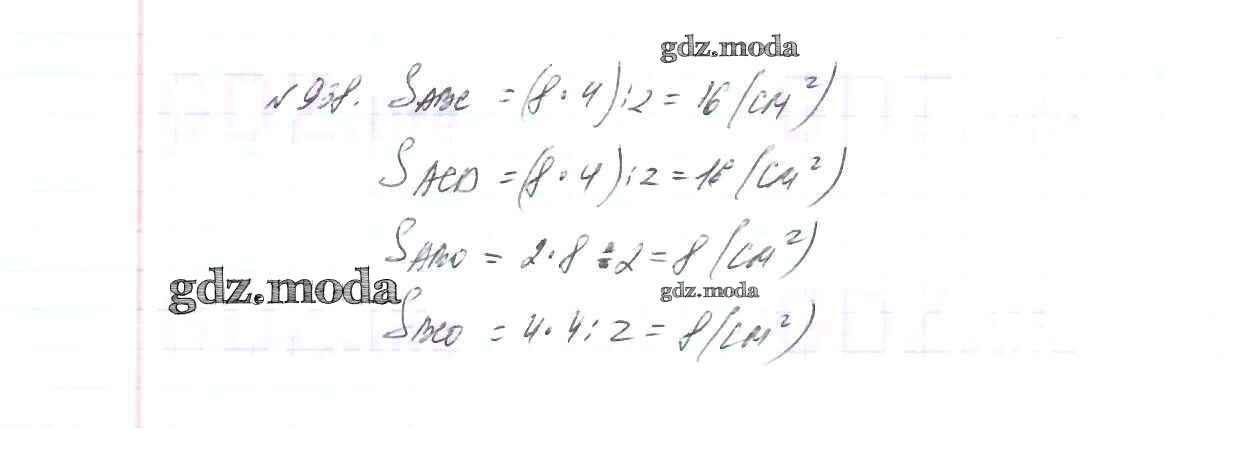 gdz.moda
№ 938. S ABC = (8 · 4) : 2 = 16 (см²)
S ACD = (8 · 4) : 2 = 16 (см²)
S ABO = 2 · 8 : 2 = 8 (см²)
gdz.moda
gdz.moda
S BCO = 4 · 4 : 2 = 8 (см²)